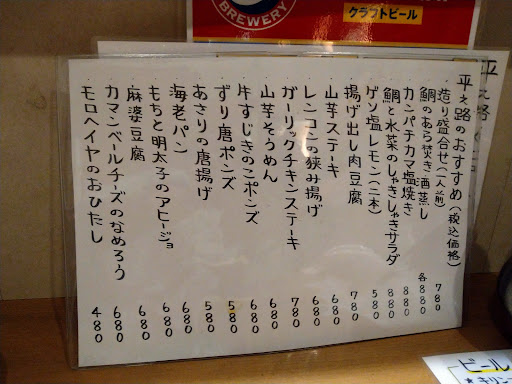 BREWERY
クラフトビール
平之路のおすすめ(税込価格)
・造り盛合せ(一人前) 780
・鯛のあら焚き・酒蒸し 各880
・カンパチカマ塩焼き 880
・鯛と水菜のしゃきしゃきサラダ 880
・ゲソ塩レモン(二本) 580
・揚げ出し肉豆腐 780
・山芋ステーキ 680
・レンコンの狭み揚げ 680
・ガーリックチキンステーキ 780
・山芋そうめん 680
・牛すじきのこポンズ 680
・ずり唐ポンズ 580
・あさりの唐揚げ 580
・海老パン 680
・もちと明太子のアヒージョ 680
・麻婆豆腐 680
・カマンベールチーズのなめろう 680
・モロヘイヤのおひたし 480
ビール